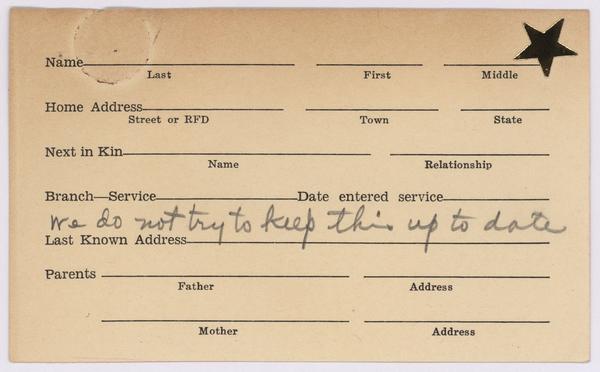 Name
Last First Middle
Home Address
Street or RFD Town State
Next in Kin
Name Relationship
Branch—Service Date entered service
we do not try to keep this up to date
Last Known Address
Parents
Father Address
Mother Address